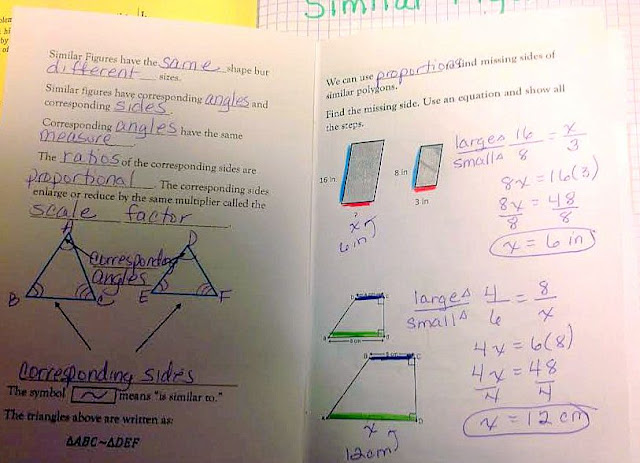 Similar Fig
Similar Figures have the same shape but
different sizes.
Similar figures have corresponding angles and
corresponding sides.
Corresponding angles have the same
measure.
The ratios of the corresponding sides are
proportional. The corresponding sides
enlarge or reduce by the same multiplier called the
scale factor.
A
D
Corresponding
angles
B
C
E
F
Corresponding sides
The symbol ~ means "is similar to."
The triangles above are written as:
ΔABC~ΔDEF
We can use proportions find missing sides of
similar polygons.
Find the missing side. Use an equation and show all
the steps.
16 in
8 in
3 in
?
x
6 in
large△ 16 = x
small△ 8 3
8x = 16(3)
8x = 48
8 8
x = 6 in
large△ 4 = 8
small△ 6 x
4x = 6(8)
4x = 48
4 4
x = 12 cm
x
12cm